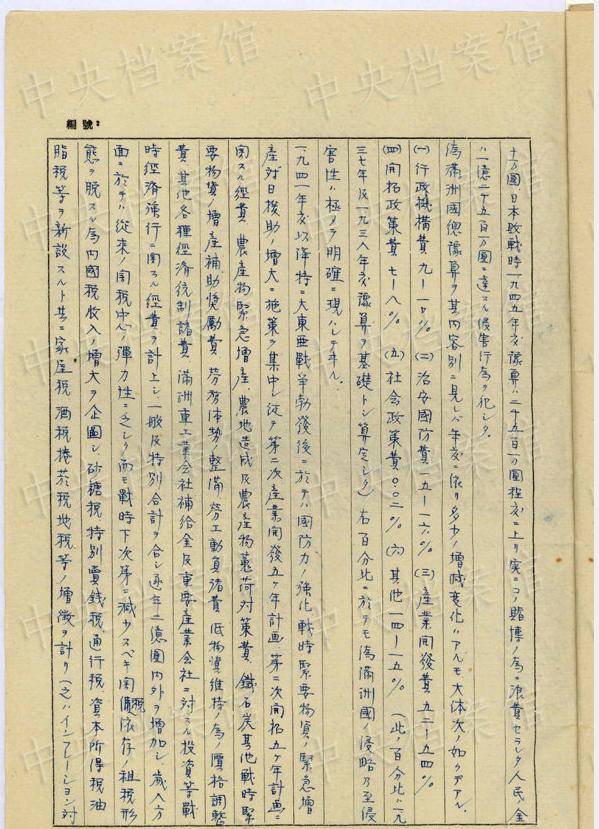 編號:
十万圓、日本敗戦時一九四五年度豫算ハ二千五百万圓程度ニ上リ実ニコノ賭博ノ為ニ浪費セラレタ人民ノ金
ハ一億二千五百万圓ニ達スル侵害行為ヲ犯シタ。
偽滿洲國總豫算ヲ其内容別ニ見レバ年度ニ依リ多少ノ増減変化ハアルモ大体次ノ如クデアル。
(一)行政機構費九ー一〇% (二)治安國防費一五ー一六% (三)産業開發費五二ー五四%
(四)開拓政策費七ー八% (五)社会政策費〇.〇二% (六)其他一四ー一五% (此ノ百分比ハ一九
三七年及一九三八年度豫算ヲ基礎トシ算定シタ)右百分比ニ於テモ偽滿洲國ノ侵略乃至侵
害性ハ極メテ明確ニ現ハレテヰル。
一九四一年度以降特ニ大東亜戦争勃發後ニ於テハ國防力ノ強化戦時緊要物資ノ緊急増
産対日援助ノ増大ニ施策ヲ集中シ従テ第二次産業開發五ケ年計画、第二次開拓五ケ年計画ニ
関スル經費、農産物緊急増産、農地造成及農産物蒐荷対策費、鐵石炭其他戦時緊
要物資ノ増産補助獎勵費、労務体勢ノ整備労工動員諸費、低物價維持ノ為ノ價格調整
費其他各種經済統制諸費、滿洲重工業会社補給金及重要産業会社ニ対スル投資等戦
時經済遂行ニ関スル經費ヲ計上シ一般及特別合計ヲ合シ逐年二億圓内外ヲ増加シ、歳入方
面ニ於テハ従来ノ関税中心ノ彈力性ニ乏シク而モ戦時下次第ニ減少スベキ関税依存ノ租税形
態ヲ脱スル為内國税收入ノ増大ヲ企圖シ、砂糖税、特別賣銭税、通行税、資本所得税、油
脂税等ヲ新設スルト共ニ家屋税、酒税、捲菸税、地税、等ノ増徴ヲ計リ(之ハインフレーション対
中央档案馆
中央档案馆
中央档案馆
中央档案馆
中央档案馆
中央档案馆